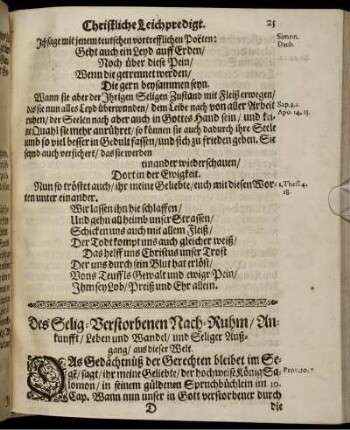 Christliche Leichpredigt. 23
Ich sage mit jenem teutschen vortrefflichen Poëten: Simon. Dach.
Geht auch ein Leyd auff Erden/
Noch über diese Pein/
Wenn die getrennet werden/
Die gern beysammen seyn.
Wann sie aber der Ihrigen Seligen Zustand mit Fleiß erwegen/
daß sie nun alles Leyd überwunden/ dem Leibe nach von aller Arbeit Sap. 3, 1.
ruhen/ der Seelen nach aber auch in Gottes Hand sein/ und kei- Apo. 14, 13.
ne Quahl sie mehr anrühret/ so können sie auch dadurch ihre Seele
umb so viel besser in Gedult fassen/ und sich zu frieden geben. Sie
seynd auch versichert/ das sie werden
einander wiederschauen/
Dort in der Ewigkeit.
Nun so tröstet auch/ ihr meine Geliebte/ euch mit diesen Wor- 1. Thess. 4.
ten unter einander. 18.
Wir lassen ihn hie schlaffen/
Und gehn all heimb unser Strassen/
Schicken uns auch mit allem Fleiß/
Der Todt kompt uns auch gleicher weiß/
Das helff uns Christus unser Trost
Der uns durch sein Blut hat erlöst/
Vons Teuffls Gewalt und ewiger Pein/
Ihm sey Lob/ Preiß und Ehr allein.
Des Selig-Verstorbenen Nach-Ruhm/ An-
kunfft/ Leben und Wandel/ und Seliger Auß-
gang/ aus dieser Welt.
DAs Gedächtnüß der Gerechten bleibet im Se-
ge/ sagt/ ihr meine Geliebte/ der hochweise König Sa- Prov. 10. 7.
lomon/ in seinem güldenen Spruchbüchlein im 10.
Cap. Wann nun unser in Gott verstorbener durch
D die